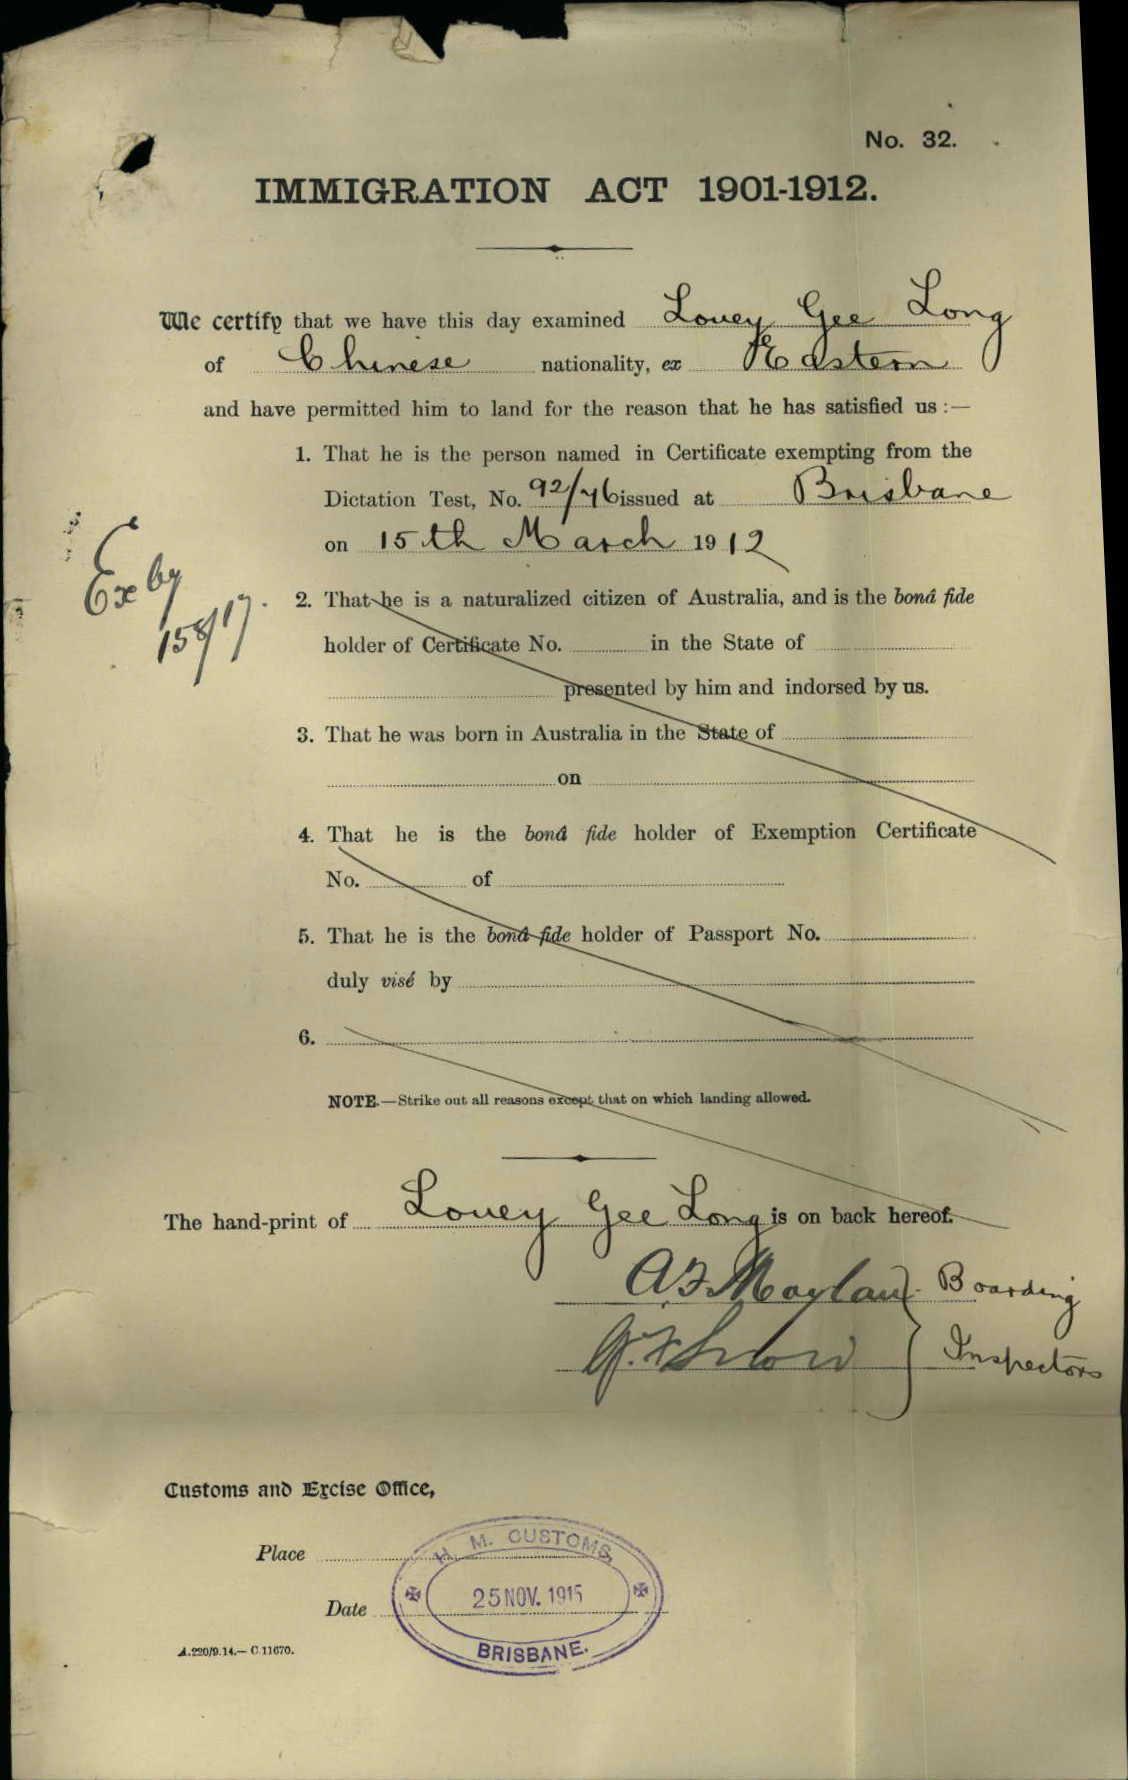 No. 32.
IMMIGRATION ACT 1901-1912.
We certify that we have this day examined Louey Gee Long
of Chinese nationality, ex Eastern
and have permitted him to land for the reason that he has satisfied us :—
1. That he is the person named in Certificate exempting from the
Dictation Test, No. 92/76 issued at Brisbane
on 15th March 1912
Ex by
158/17.
2. That he is a naturalized citizen of Australia, and is the bonâ fide
holder of Certificate No. in the State of
presented by him and indorsed by us.
3. That he was born in Australia in the State of
on
4. That he is the bonâ fide holder of Exemption Certificate
No. of
5. That he is the bonâ fide holder of Passport No.
duly visé by
6.
NOTE.—Strike out all reasons except that on which landing allowed.
The hand-print of Louey Gee Long is on back hereof.
Boarding
Inspectors
Customs and Excise Office,
Place
H. M. CUSTOMS,
Date
25 NOV. 1915
BRISBANE.
A.220/9.14.— C.11670.